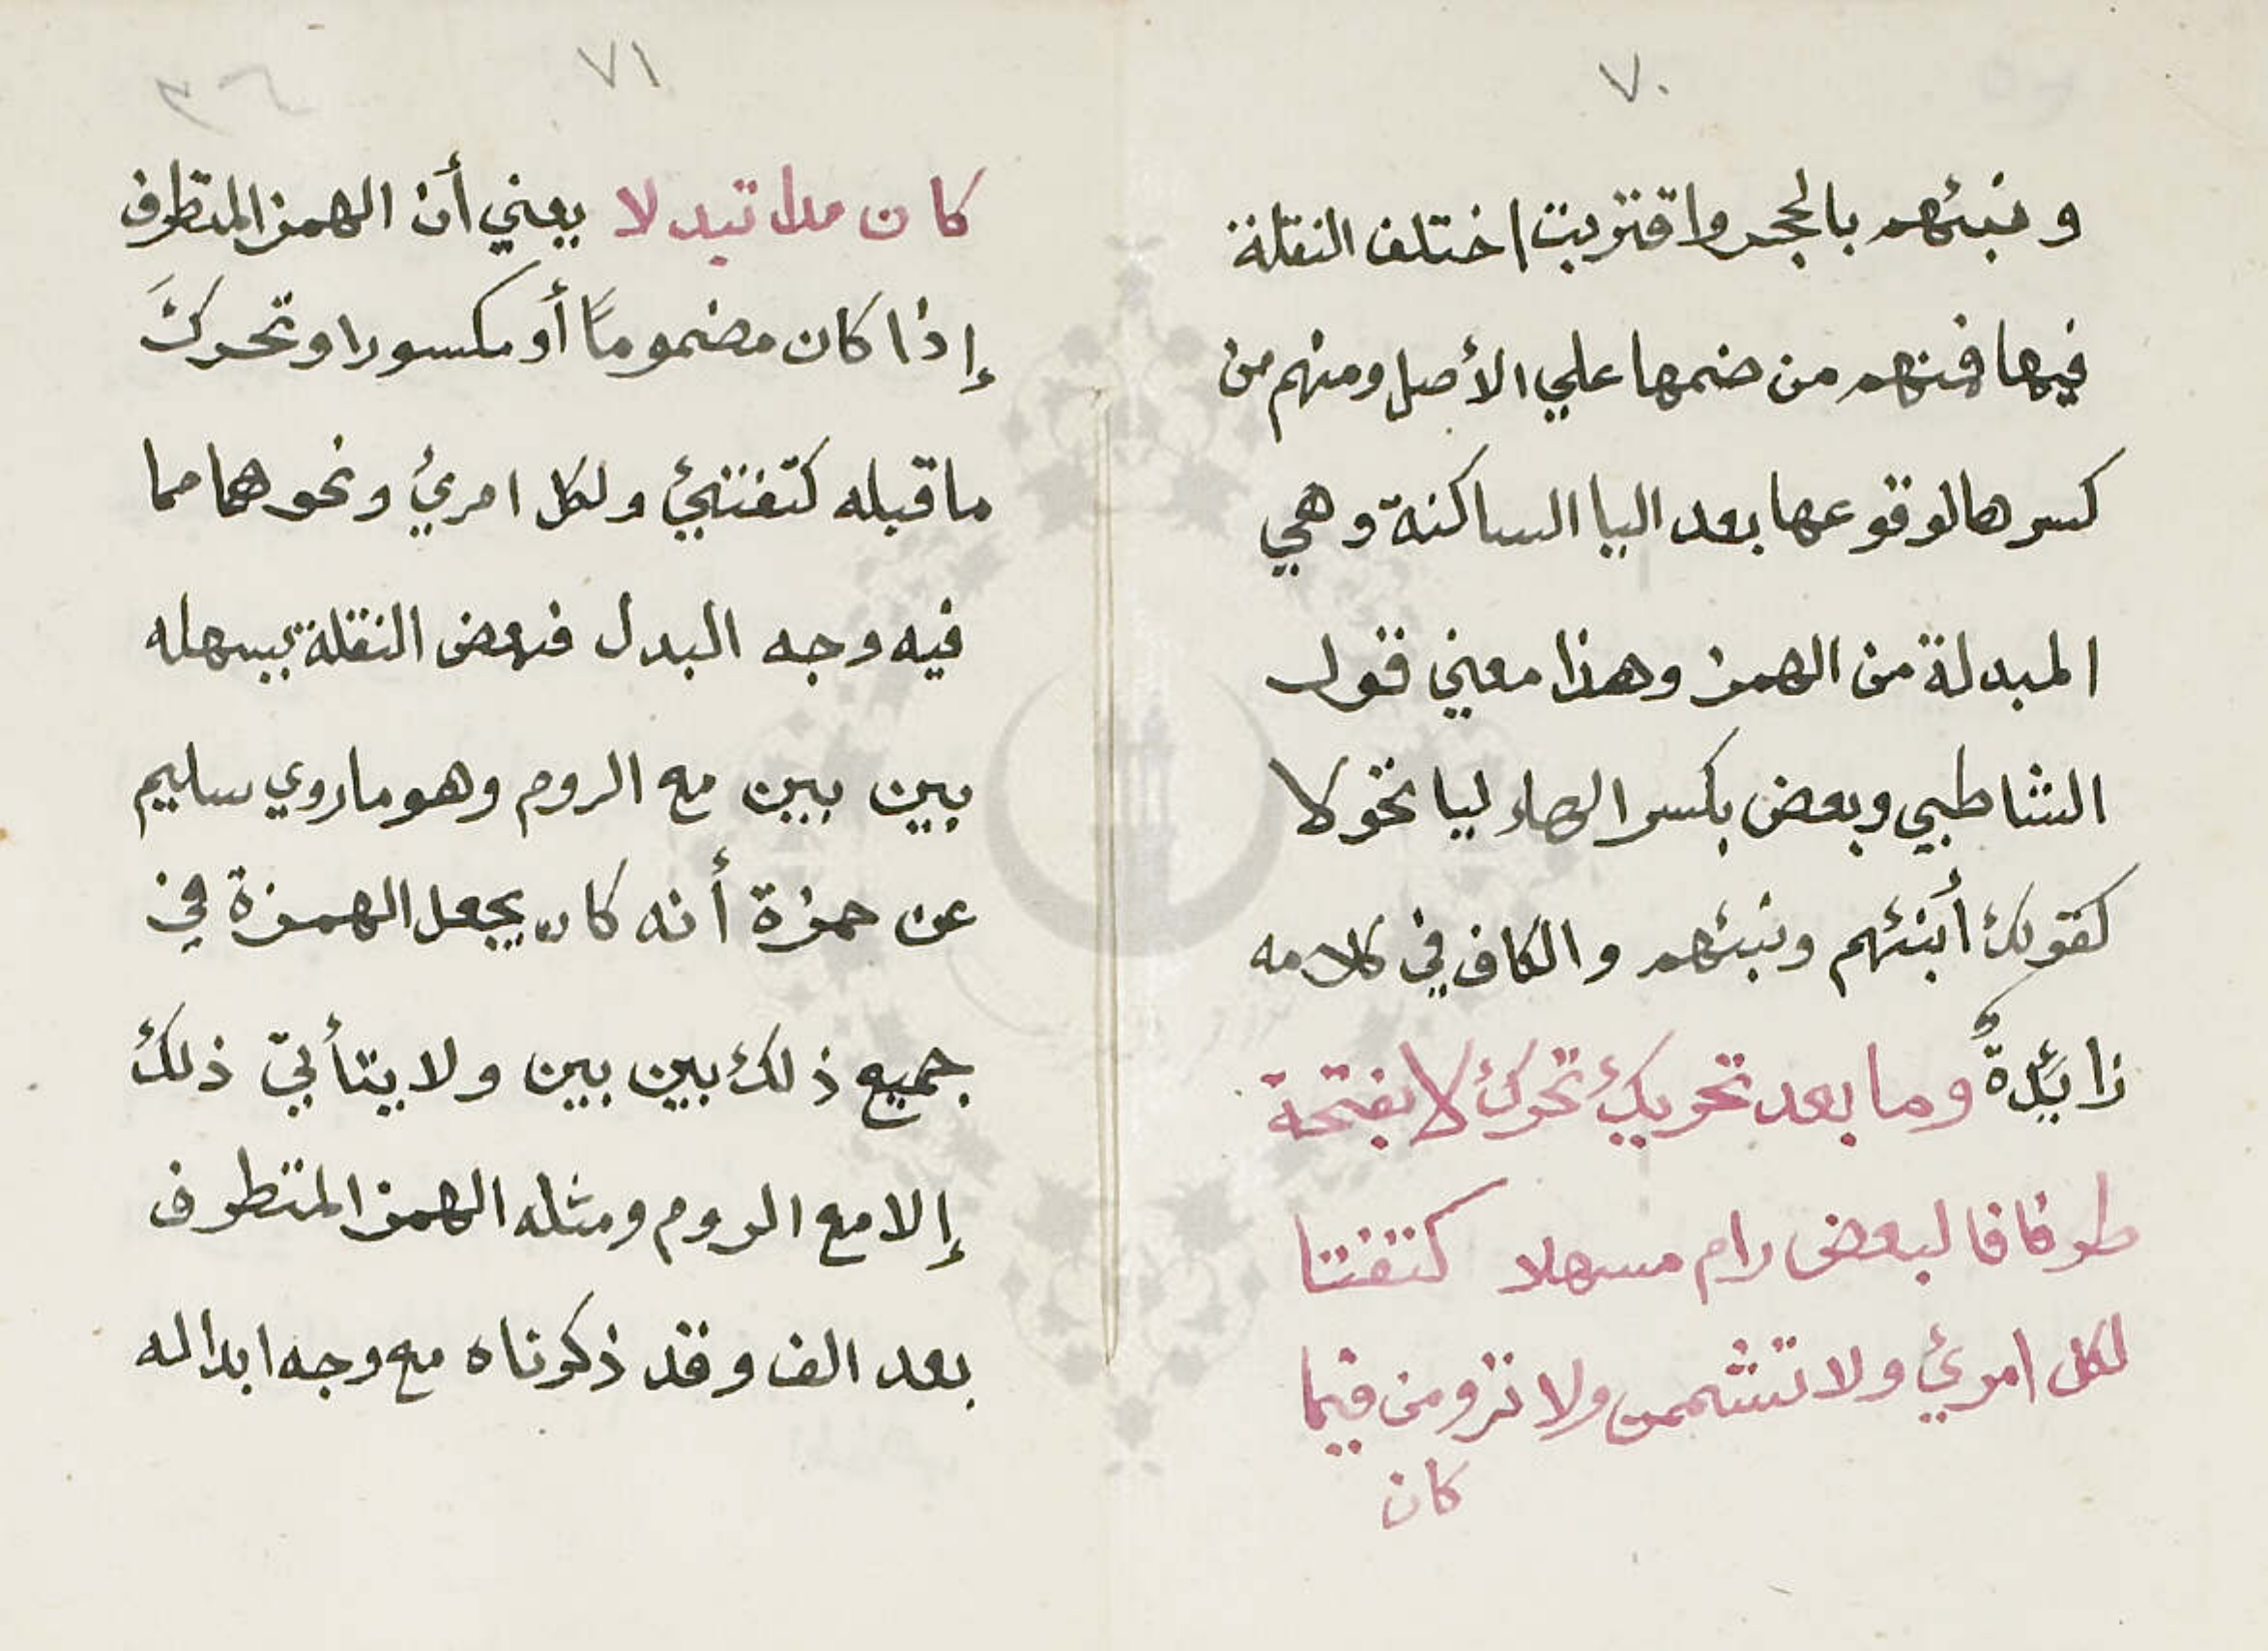 ٧٠
ونبئهم بالحجر واقتربت اختلف النقلة
فيها فمنهم من ضمها علي الأصل ومنهم من
كسرها لوقوعها بعد اليا الساكنة وهي
المبدلة من الهمز وهذا معني قول
الشاطبي وبعض بكسر الهاء ليا تحولا
كقولك أنبئهم ونبئهم والكاف في كلامه
زايئدةٌ وما بعد تحريك تحرك لا بفتحة
طرفا فا لبعض رام مسهلا كتفتئا
لكل امرئ ولا تشممن ولا ترومن فيما
كان
٧١
كان مدا تبدلا يعني أن الهمز المتطرف
إذا كان مضموماً أو مكسورا وتحركَ
ما قبله كتفتئي ولكل امرئ ونحوهما مما
فيه وجه البدل فبعض النقلة يسهله
بين بين مع الروم وهو ما روي سليم
عن حمزة أنه كان يجعل الهمزة في
جميع ذلك بين بين ولا يتأتي ذلك
إلا مع الروم ومثله الهمز المتطرف
بعد الف وقد ذكرناه مع وجه ابداله